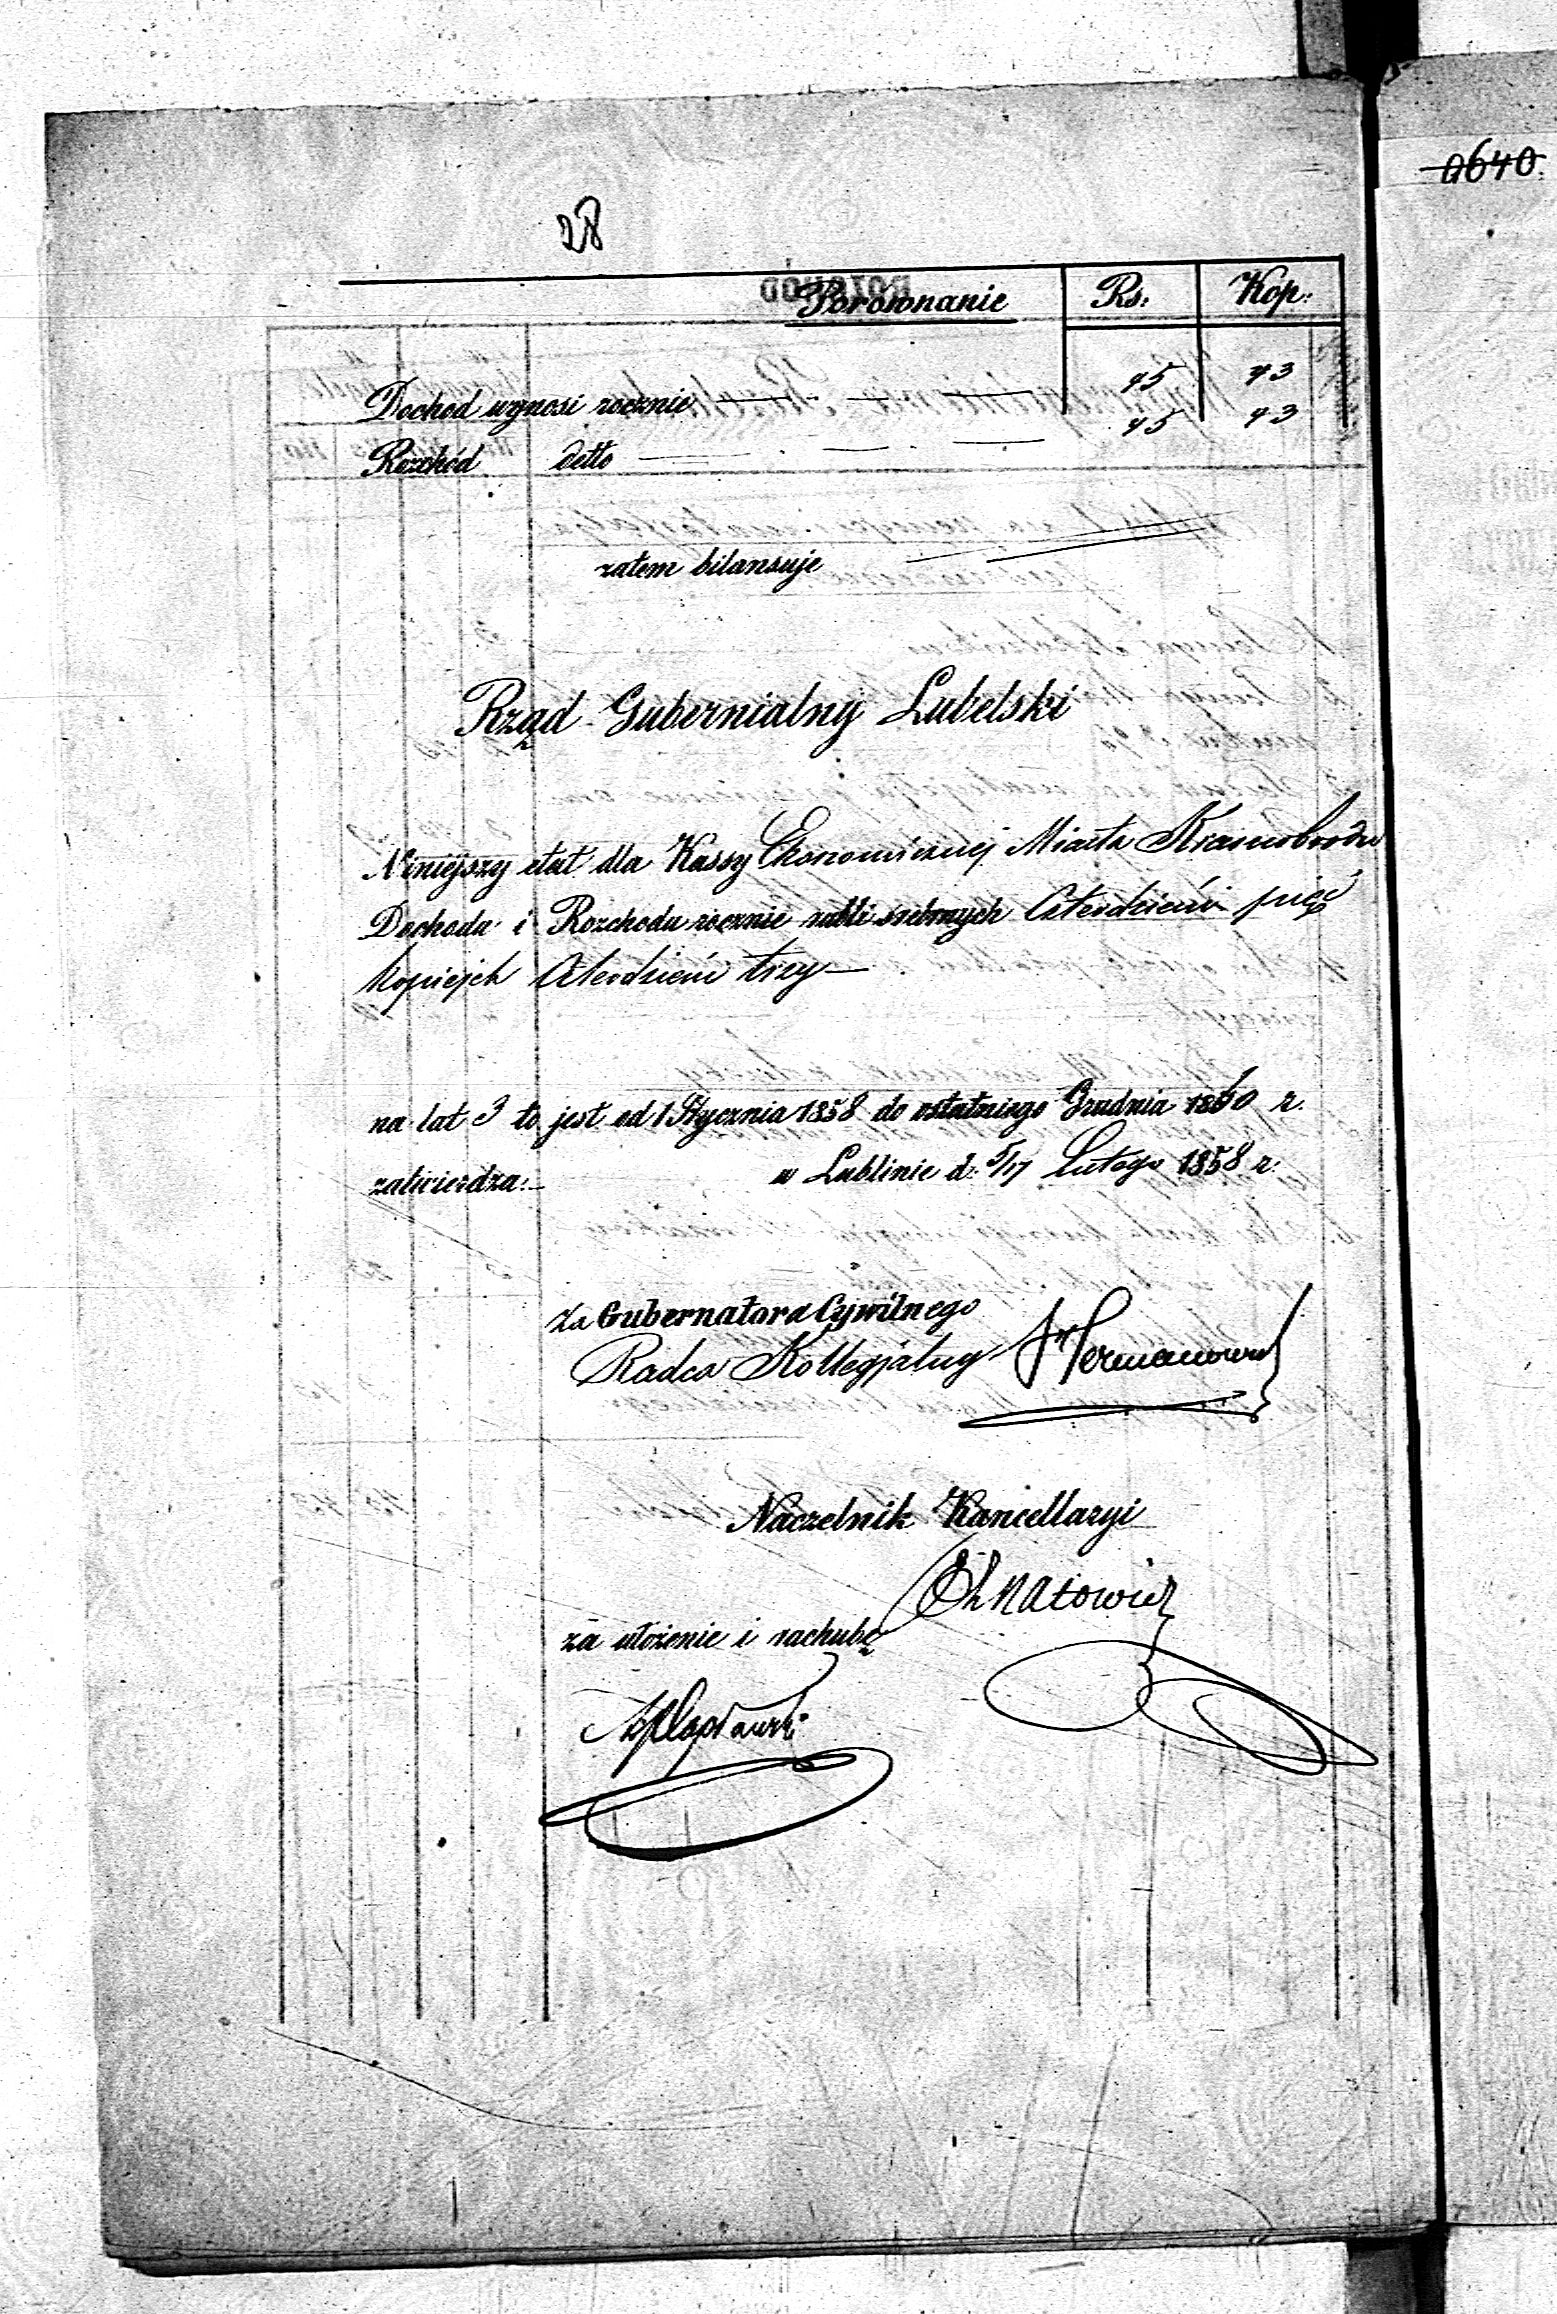 0640.
28
Porównanie Rs: Kop:
Dochod wynosi rocznie 45 43
Rozchód detto 45 43
zatem bilansuje
Rząd Gubernialny Lubelski
Niniejszy etat dla Kassy Ekonomicznej Miasta Krasnobrodu
Dochodu i Rozchodu rocznie rubli srebrnych Czterdzieści pięć
kopiejek Czterdzieści trzy
na lat 3 to jest od 1 Stycznia 1858 do ostatniego Grudnia 1860 r.
zatwierdza.
w Lublinie d. 5/17 Lutego 1858 r.
za Gubernatora Cywilnego
Radca Kollegjalny
Naczelnik Kancellaryi
za ułożenie i rachubę